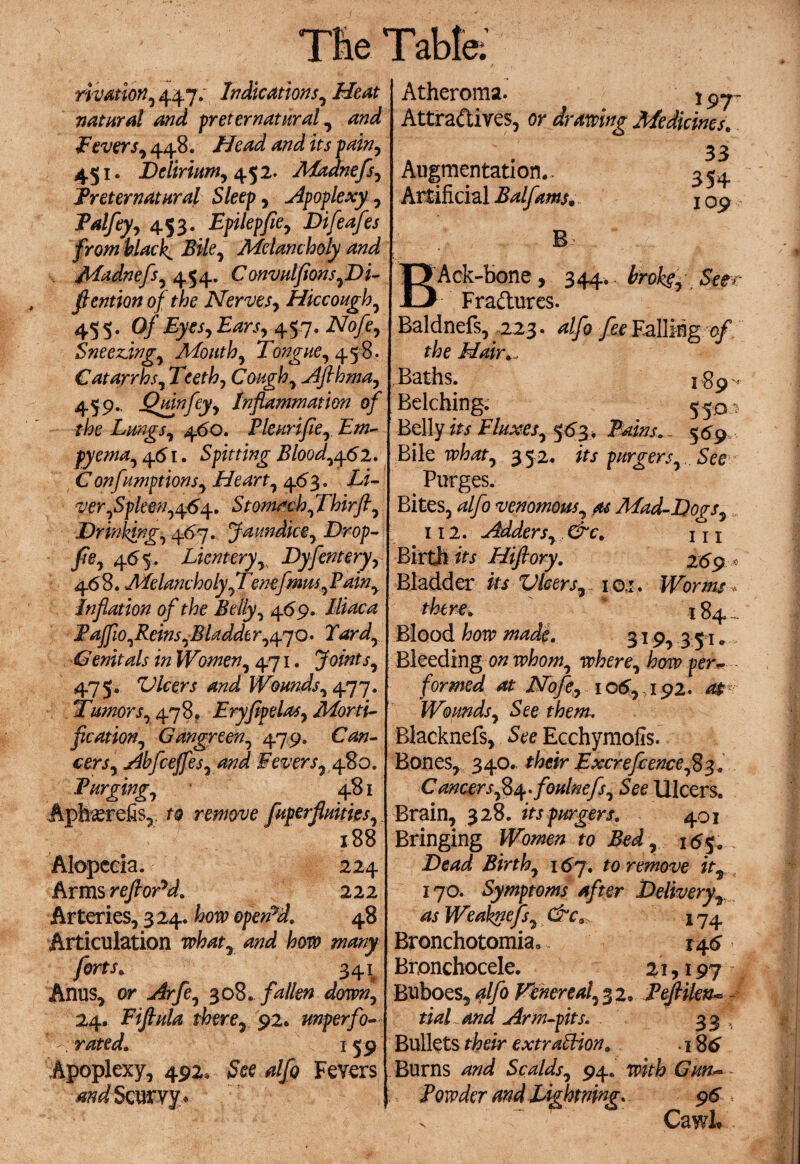 The Table.
rivation, 447. Indications, Heat
natural and preternatural, and
Fevers, 448. Head and its pain,
451. Delirium, 452. Madness,
Preternatural Sleep, Apoplexy,
Palsey, 453. Epilepsie, Diseases
from black Bile, Melancholy and
Madness, 454. Convulsions, Di-
stention of the Nerves, Hiccough,
455. Of Eyes, Ears, 457. Nose,
Sneezing, Mouth, Tongue, 458.
Catarrhs, Teeth, Cough, Asthma,
459. Quinsey, Inflammation of
the Lungs, 460. Pleurisie, Em-
pyema, 461. Spitting Blood, 462.
Consumptions, Heart, 463. Li-
ver, Spleen, 464. Stomach, Thirst,
Drinking, 467. Jaundice, Drop-
sie, 465. Lientery, Dysentery,
468. Melancholy, Tenesmus, Pain,
Inflation of the Belly, 469. Iliaca
Passio, Reins, Bladder, 470. Yard,
Genitals in Women, 471. Joints,
475. Ulcers and Wounds, 477.
Tumors, 478. Erysipelas, Morti-
fication, Gangreen, 479. Can-
cers, Abscesses, and Fevers, 480.
Purging, 481
Aphæresis, to remove superfluities,
188
Alopecia. 224
Arms restor'd. 222
Arteries, 324. how open'd. 48
Articulation what, and how many
sorts. 341
Anus, or Arse, 308. fallen down,
24. Fistula there, 92. unperfo-
rated. 159
Apoplexy, 492. See also Fevers
and Scurvy.
Atheroma. 197
Attractives, or drawing Medicines.
33
Augmentation. 354
Artificial Balsams. 109
B
BAck-bone, 344. broke, See
Fractures.
Baldness, 223. also see Falling of
the Hair.
Baths. 189
Belching. 550
Belly its Fluxes, 563. Pains. 569
Bile what, 352. its purgers, See
Purges.
Bites, also venomous, as Mad-Dogs,
112. Adders, &c. 111
Birth its History. 269
Bladder its Ulcers, 101. Worms
there. 184
Blood how made. 319, 351.
Bleeding on whom, where, how per-
formed at Nose, 106, 192. at
Wounds, See them.
Blackness, See Ecchymosis.
Bones, 340. their Excrescence, 83.
Cancers, 84. foulness, See Ulcers.
Brain, 328. its purgers. 401
Bringing Women to Bed, 165.
Dead Birth, 167. to remove it,
170. Symptoms after Delivery,
as Weakness, &c. 174
Bronchotomia. 146
Bronchocele. 21, 197
Buboes, also Venereal, 32. Pestilen-
tial and Arm-pits. 33
Bullets their extraction. 186
Burns and Scalds, 94. with Gun-
Powder and Lightning. 96
Cawl.